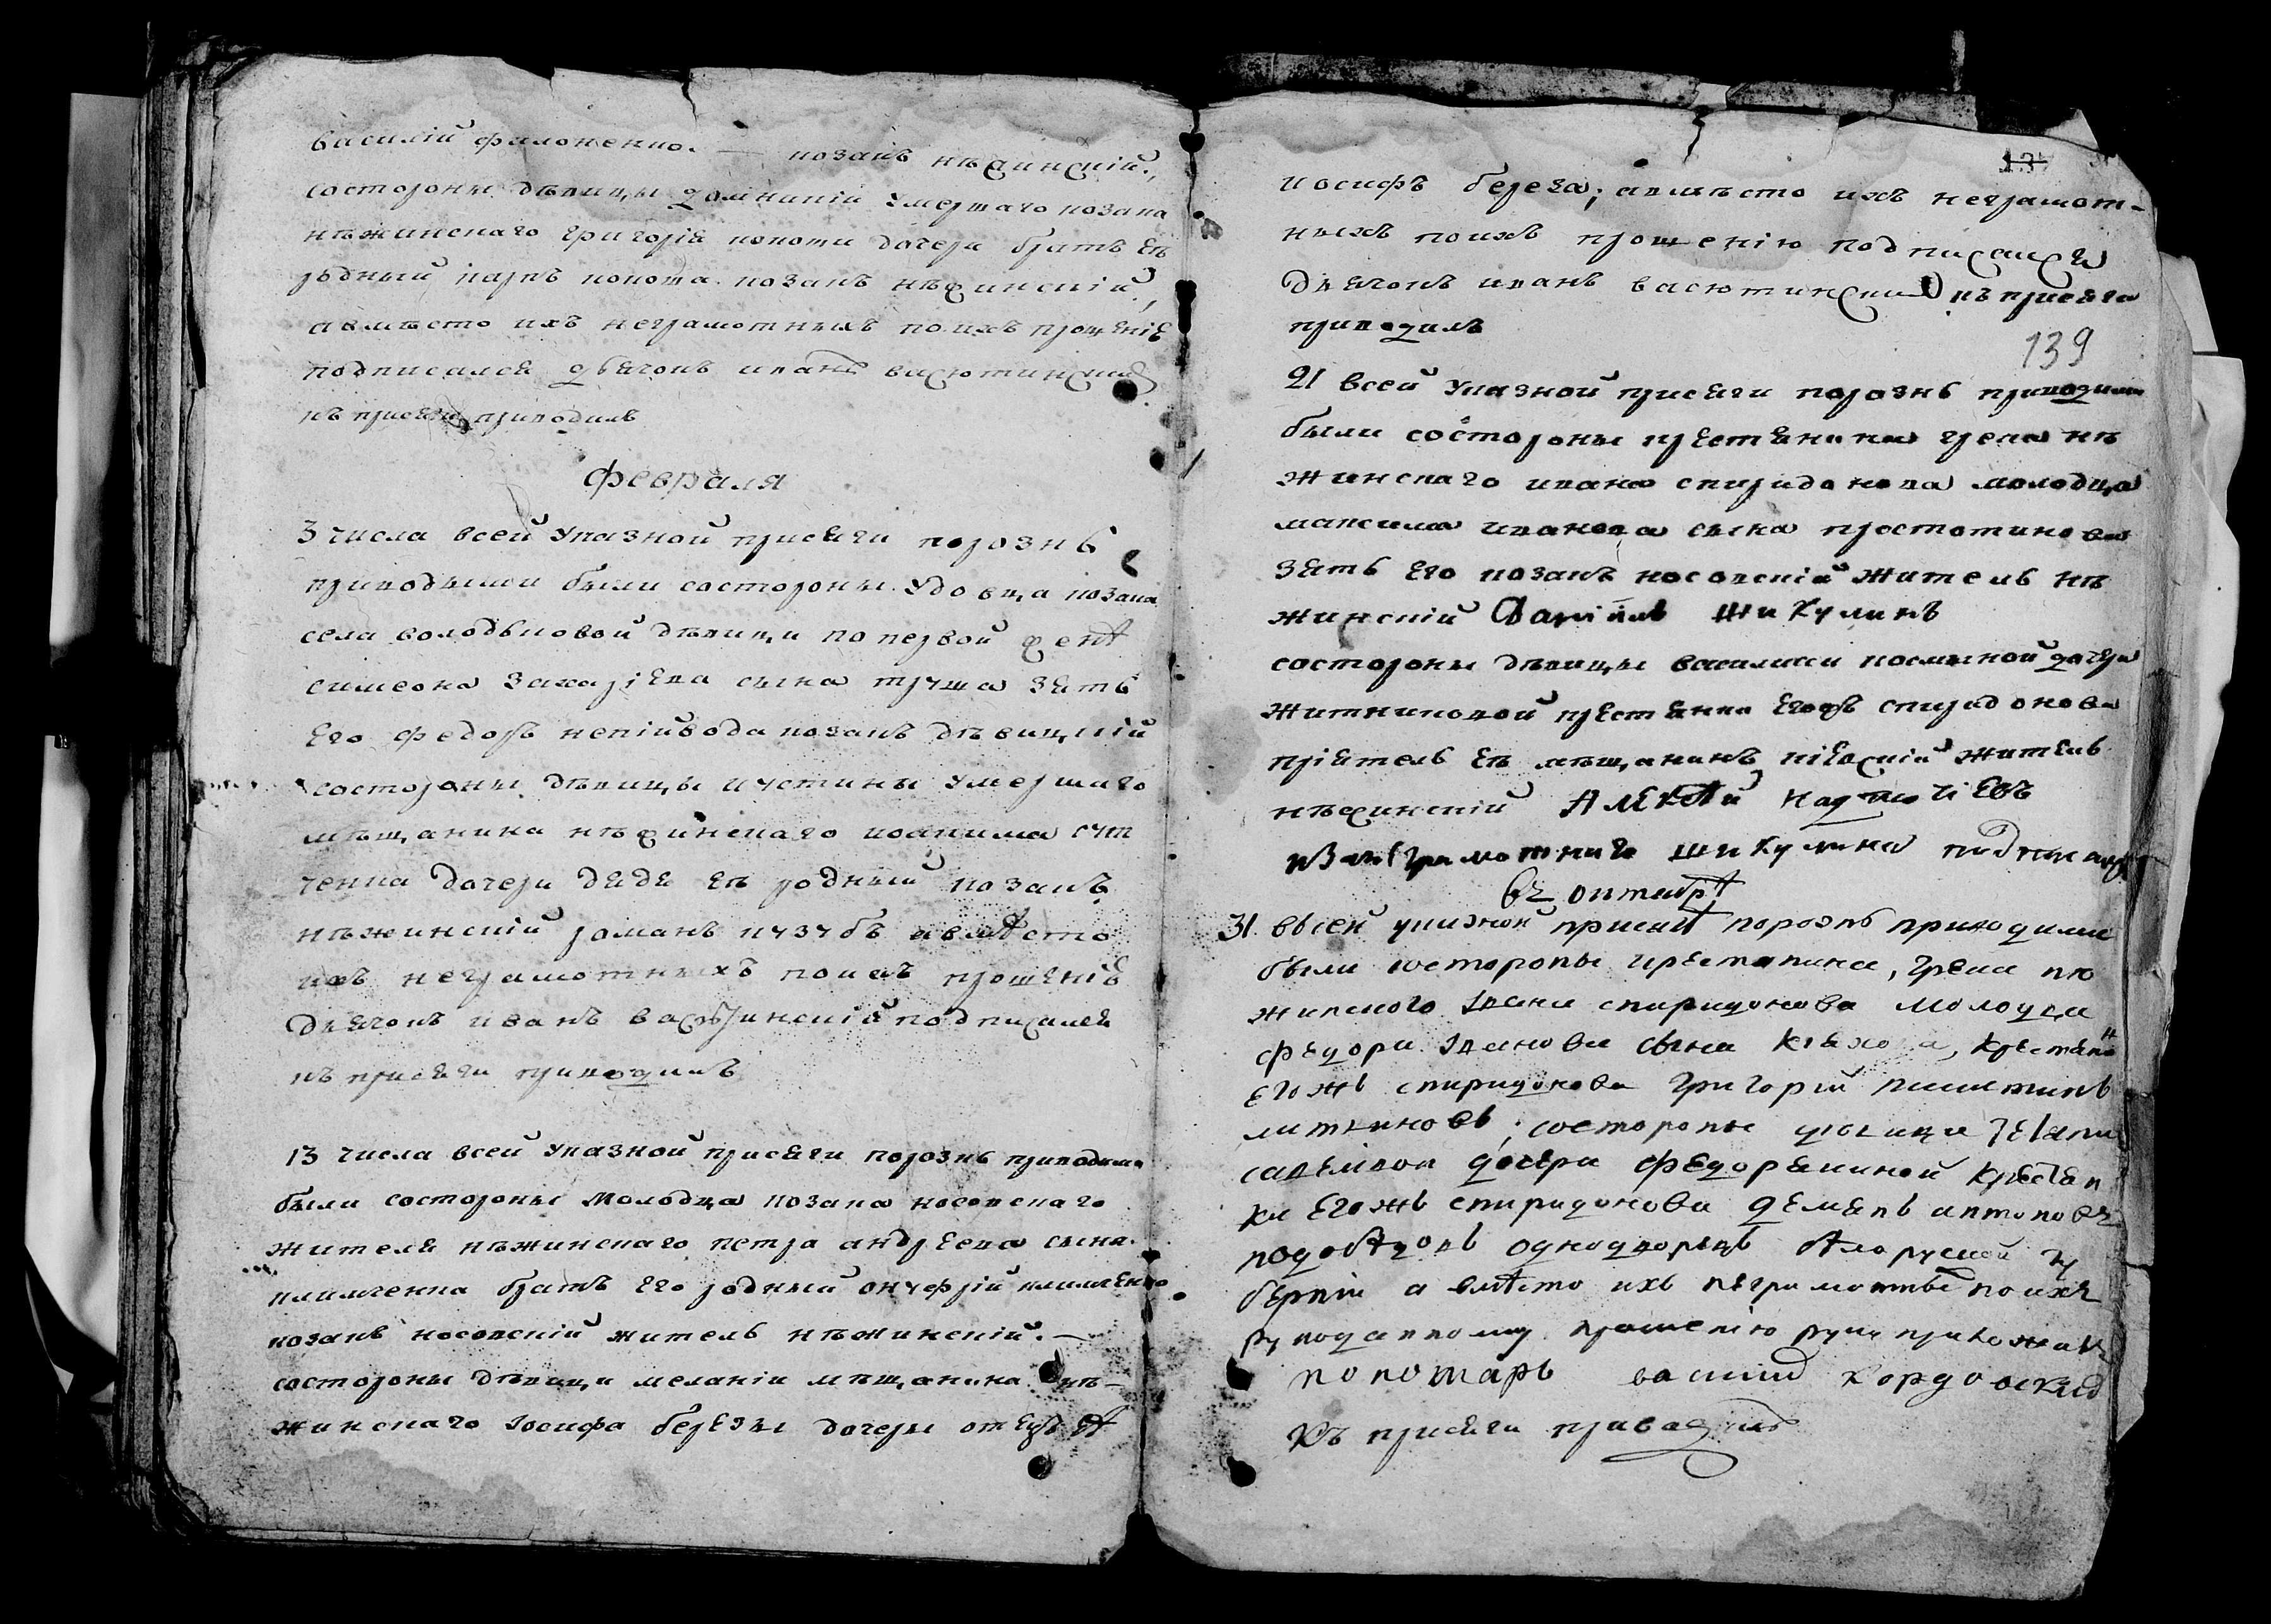 василій филоненко. — козакъ нѣжинскій,
состороны дѣвицы домникіи умершаго козака
нѣжинскаго григорія кокоши дочери братъ еѣ
родный карпъ кокоша козакъ нѣжинскій,
авмѣсто ихъ неграмотныхъ поихъ прошенію
подписался дьячокъ иванъ васютинскій
къ присяги приводилъ
февраля
3 числа всей указной присяги порознь
приводимы были состороны удовца козака
села володковой дѣвици попервой женѣ
симеона захаріева сына труша зять
его федоръ непійвода козакъ дѣвицкій
состороны дѣвицы иустины умершаго
мѣщанина нѣжинскаго иоакима
ченка дочери дядя еѣ родный козакъ
нѣжинскій романъ кчзчбъ авмѣсто
ихъ неграмотныхъ поихъ прошеніе
дьячокъ иванъ васютинскій подписался
къ присяги приводилъ
13 числа всей указной присяги порознь приводимы
были состороны молодца козака носовскаго
жителя нѣжинскаго петра андреева сына
климченка братъ его родный онуфрій климченко
козакъ носовскій житель нѣжинскій. —
состороны дѣвици меланіи мѣщанина нѣ-
жинскаго иосифа березы дочеры отецъ еѣ
иосифъ береза; авмѣсто ихъ неграмот-
ныхъ поихъ прошенію подписался
дьячокъ иванъ васютинскій къ присяги
приводилъ
139
21 всей указной присяги порознь приводимы
были состороны крестянина грека нѣ
жинскаго ивана спиридонова молодца
максима иванова сына простотинова
зять его козакъ носовскій житель нѣ
жинскій Даніилъ шикулинъ
состороны дѣвицы василиси косминой дочери
житниковой крестянки егожъ спиридонова
пріятель еѣ мѣщанинъ кіевскій житель
нѣжинскій Алексѣй
неграмотнаго шикулина подписался
въ октябрѣ
31 въсей указной присягѣ порознь приводими
были состороны крестянина, грека нѣ
жинского Ивана спиридонова молодца
федора Иванова сына крестянинъ
егожъ спиридонова григорій никитинъ
литвиновъ; состороны дѣвици
савеливой дочери федорениной крестян
ки егожъ спиридонова демянъ антоновъ
однодворецъ бѣлоруской гу
берніи а вмѣсто ихъ неграмотные поихъ
рукоданному прошенію руку приложилъ
пономарь василій кордовскій
къ присяги приводилъ